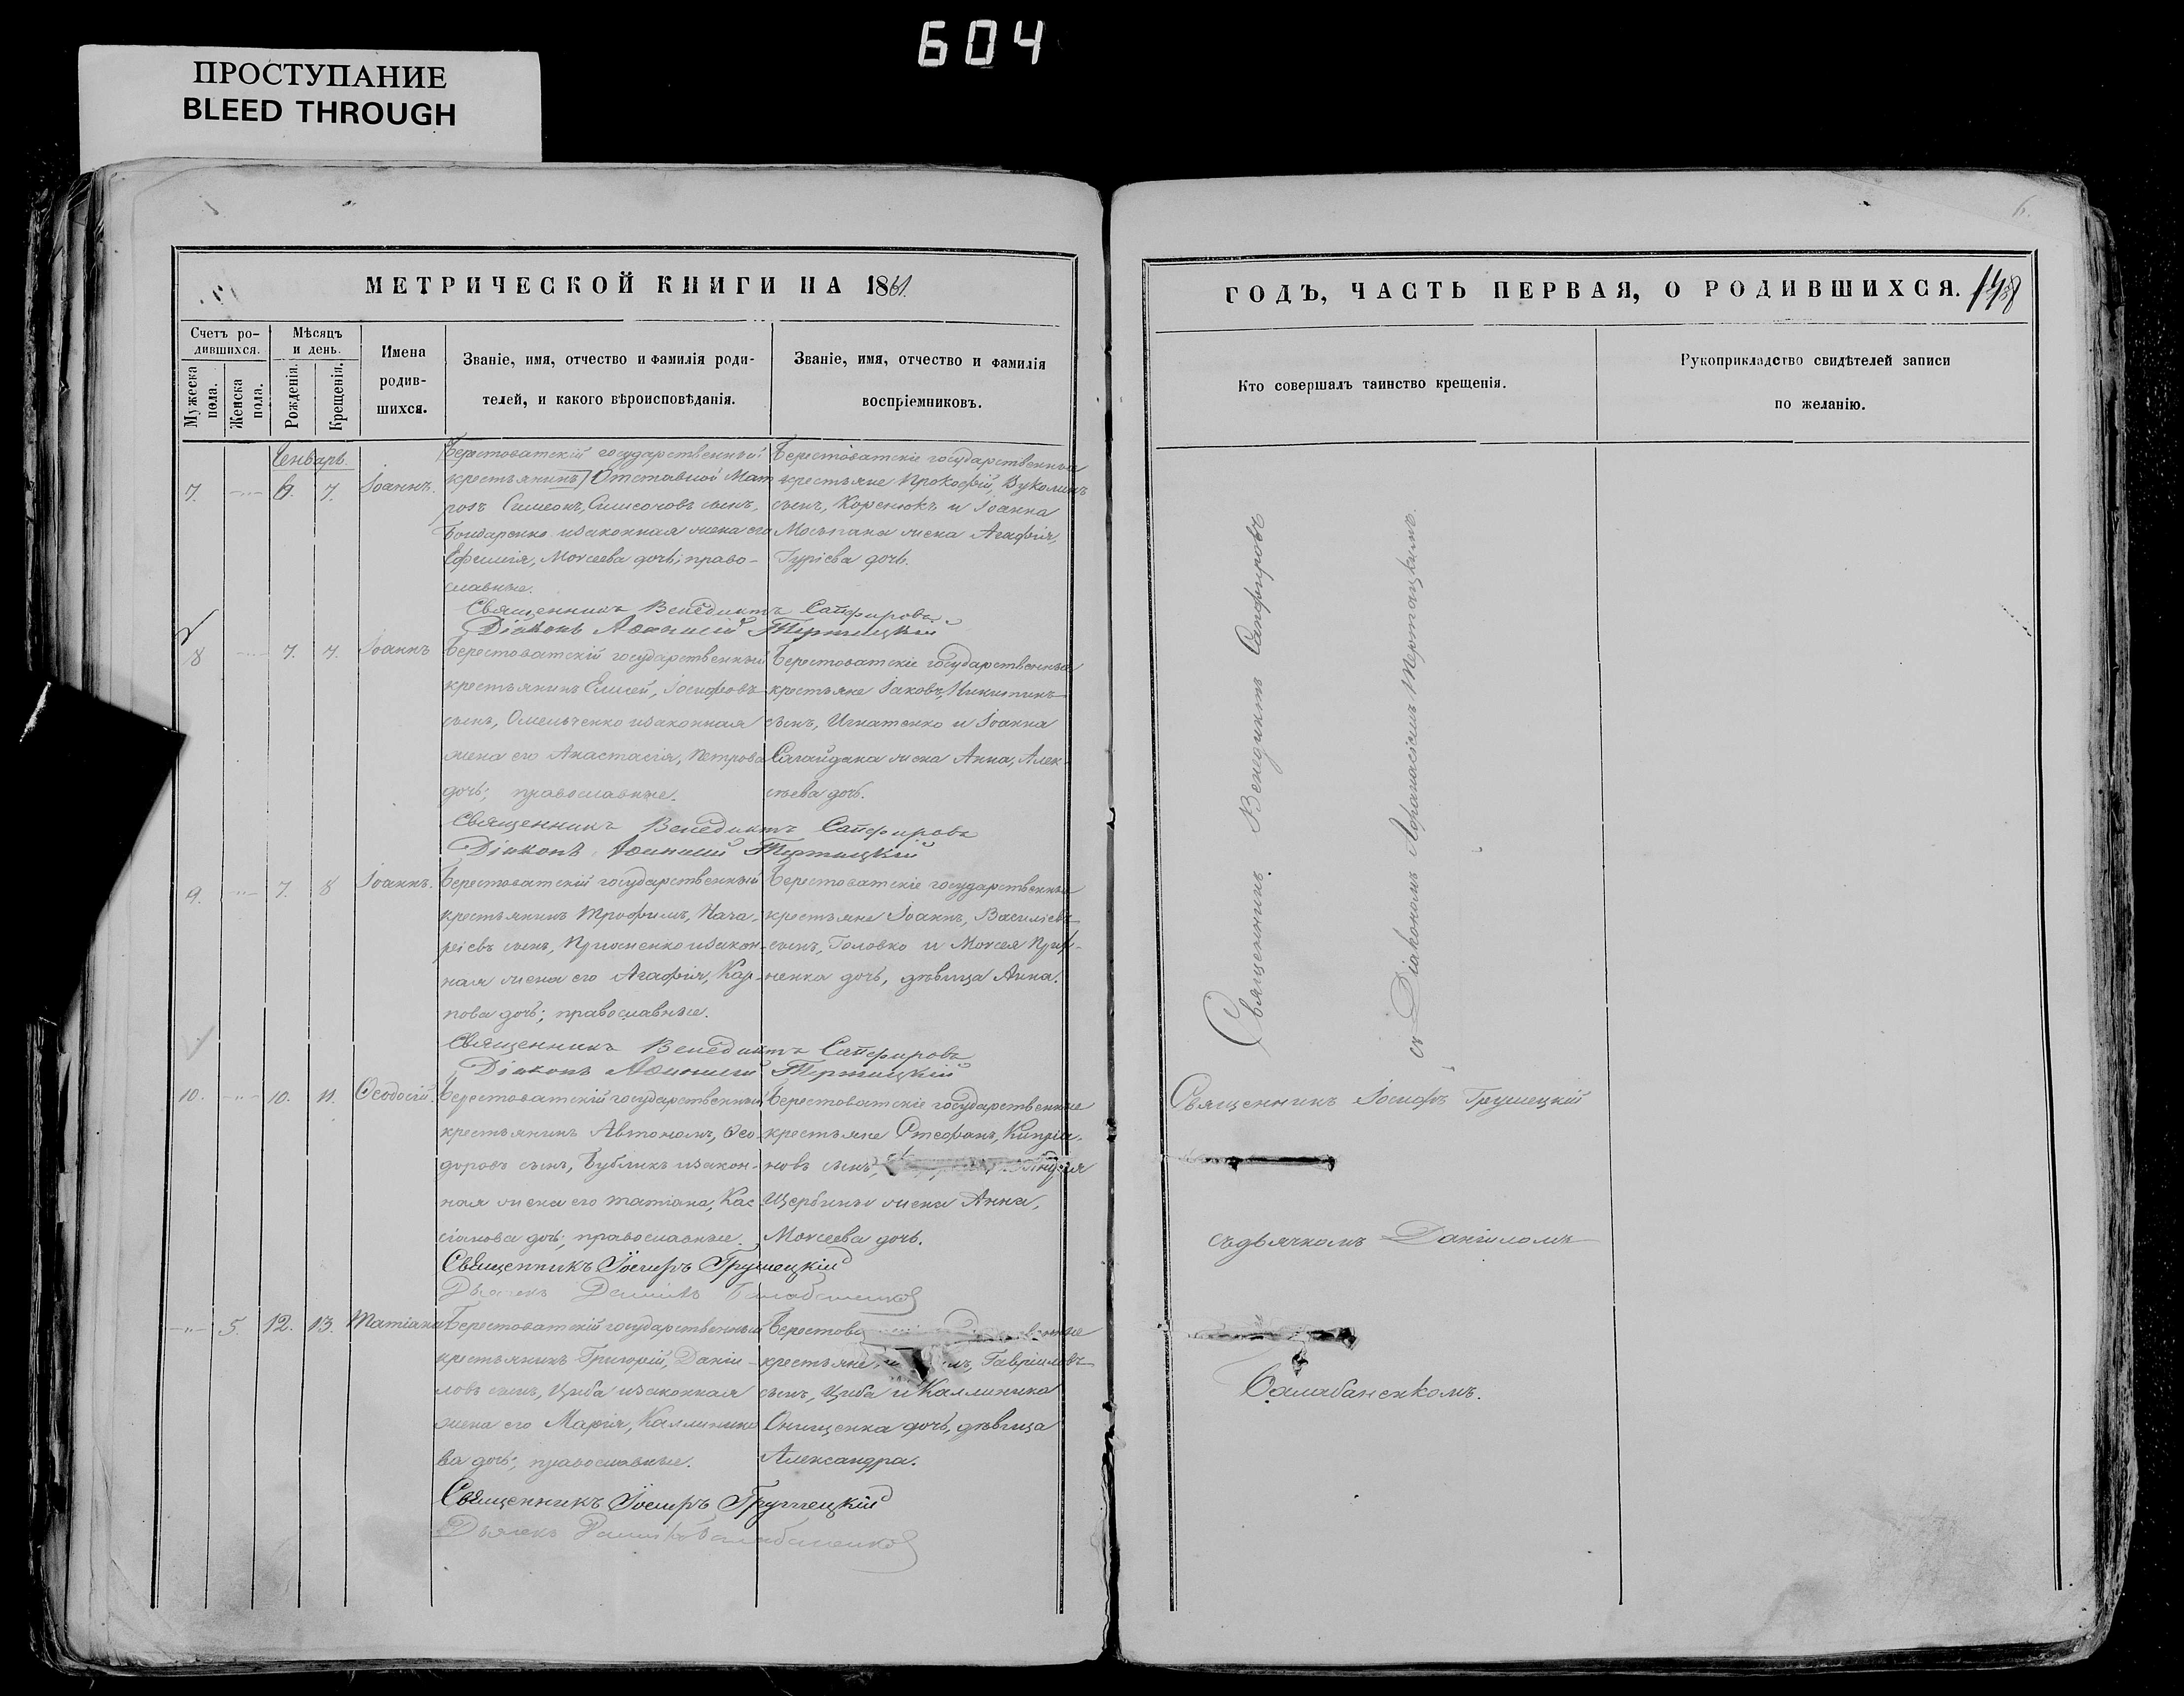 604
ПРОСТУПАНИЕ
BLEED THROUGH
6.
МЕТРИЧЕСКОЙ КНИГИ НА 1861.
Счетъ ро-
дившихся.
Мужеска
пола.
Женска
пола.
Мѣсяцъ
и день.
Рожденія.
Крещенія.
Имена
родив-
шихся.
Званіе, имя, отчество и фамилія роди-
телей, и какого вѣроисповѣданія.
Званіе, имя, отчество и фамилія
воспріемниковъ.
Генварь.
7. 6. 7. Іоаннъ.
Берестоватскій государственный
крестьянинъ Отставной Мат
росъ Симеонъ, Симеоновъ сынъ,
Бондаренко и законная жена его
Ефимія, Моисеева дочь; право-
славные.
Берестоватскіе государственные
крестьяне Прокофій, Вуколинъ
сынъ, Коренюкъ и Іоанна
Мосьпана жена Агафія,
Гурієва дочь.
Священникъ Венедиктъ Сапфировъ
Діаконъ Аѳанасій Терпицкій
8 7. 7. Іоаннъ
Берестоватскій государственный
крестьянинъ Елисей, Іосифовъ
сынъ, Омельченко и законная
жена его Анастасія, Петрова
дочь; православные.
Берестоватскіе государственные
крестьяне Іаковъ, Никитинъ
сынъ, Игнатенко и Іоанна
Сагайдака жена Анна, Алек-
сѣева дочь.
Священникъ Венедиктъ Сапфировъ
Діаконъ Аѳанасій
9. 7. 8 Іоаннъ.
Берестоватскій государственный
крестьянинъ Трофимъ, Наза-
ріевъ сынъ, и закон-
ная жена его Агафія, Кар-
пова дочь; православные.
Берестоватскіе государственные
крестьяне Іоаннъ, Василіевъ
сынъ, Головко и Моисея
ненка дочь, дѣвица Анна.
Священникъ Венедиктъ Сапфировъ
Діаконъ Аѳанасій
10. 10. 11. Ѳеодосій.
Берестоватскій государственный
крестьянинъ Автономъ, Ѳео-
доровъ сынъ, Бубликъ и закон-
ная жена его Татіана, Кас-
сіанова дочь; православные.
Берестоватскіе государственные
крестьяне Стефанъ, Кипріа-
новъ сынъ,
Щербины жена Анна,
Моисеева дочь.
Священникъ Іосифъ Грушецкій
Дьячекъ Даніилъ Балабаненко
5. 12. 13. Татіана
Берестоватскій государственный
крестьянинъ Григорій, Даніи-
ловъ сынъ, Циба и законная
жена его Марія, Каллинико
ва дочь; православные.
крестьяне Гавріиловъ
сынъ, Циба и Каллиника
Онищенка дочь, дѣвица
Александра.
Священникъ Іосифъ Грушецкій
Дьячекъ Даніилъ Балабаненко
ГОДЪ, ЧАСТЬ ПЕРВАЯ, О РОДИВШИХСЯ. 148
Кто совершалъ таинство крещенія.
Рукоприкладство свидѣтелей записи
по желанію.
Священникъ Венедиктъ Сапфировъ
съ Діакономъ Афанасіемъ
Священникъ Іосифъ Грушецкій
съ дьячкомъ Даніиломъ
Балабаненкомъ.